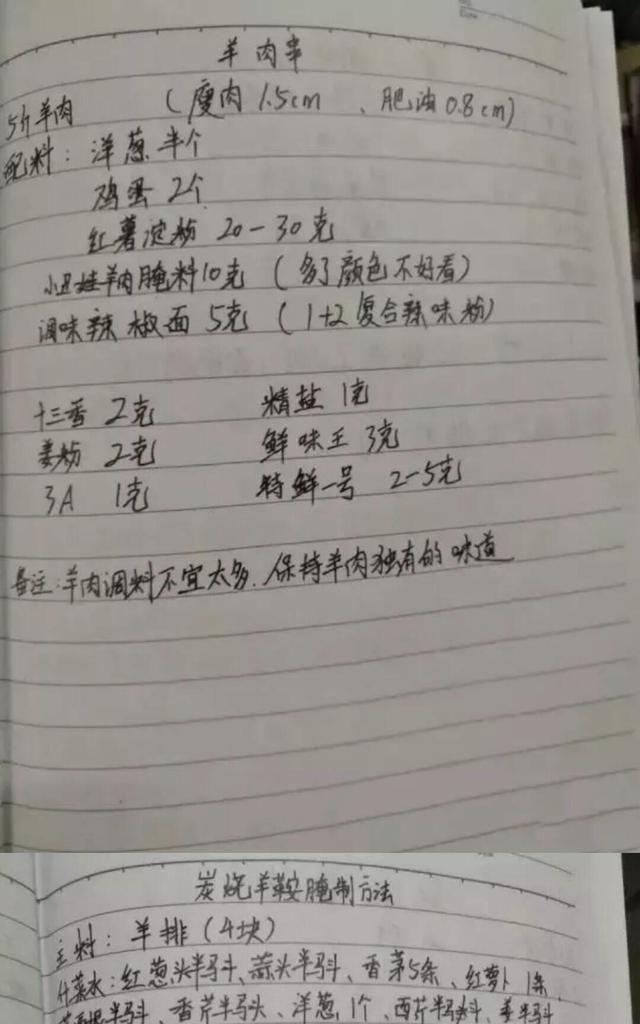 羊肉串
5斤羊肉 (瘦肉1.5cm 、肥油0.8cm)
配料：洋葱半个
鸡蛋2个
红薯淀粉 20-30克
羊肉腌料10克 (多了颜色不好看)
调味辣椒面 5克 (1+2复合辣味粉)
十三香 2克 精盐 1克
姜粉 2克 鲜味王 3克
3A 1克 特鲜一号 2-5克
备注：羊肉调料不宜太多.保持羊肉独有的味道
炭烧羊鞍腌制方法
主料：羊排(4块)
什菜水：红葱头半马斗、蒜头半马斗、香茅5条、红萝卜1条、
半马斗、香芹半马头、洋葱1个、西芹半马斗、姜半马斗